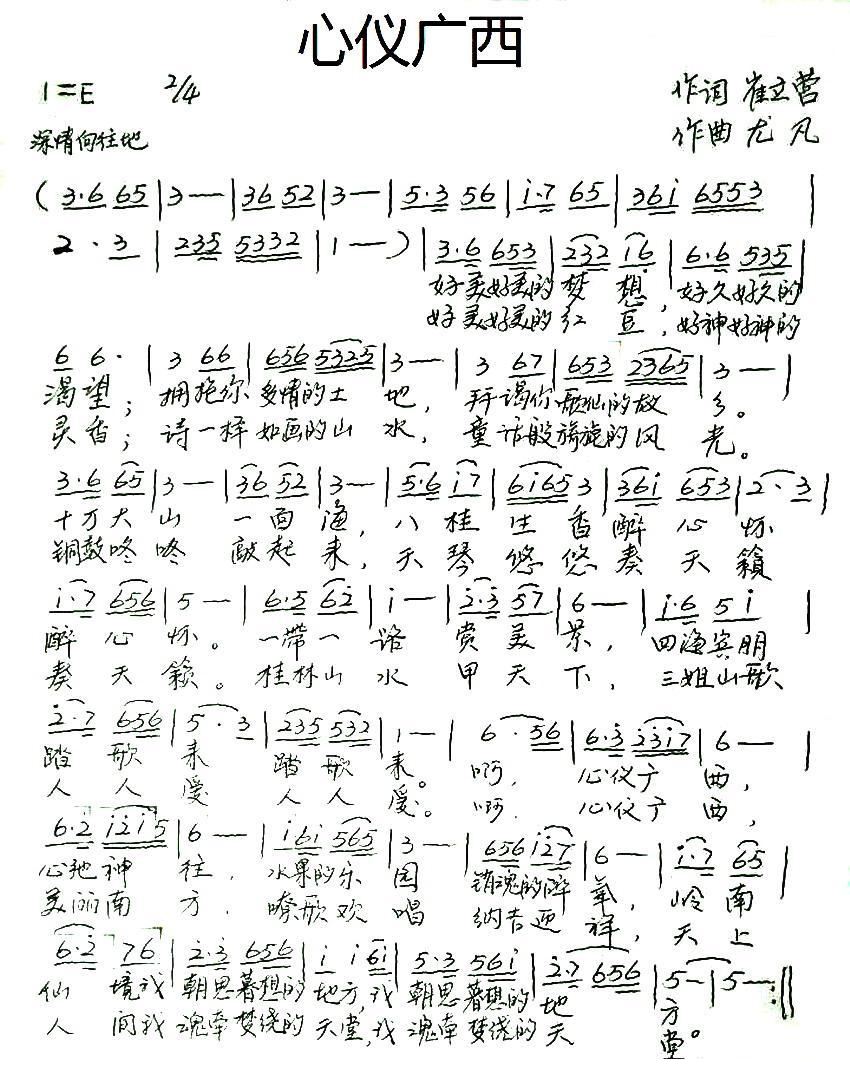 心仪广西
1=E 2/4 作词 崔立营
深情向往地 作曲 尤凡
(3·6 65 | 3 — | 36 52 | 3 — | 5·3 56 | i·7 65 | 36i 6553 |
2·3 | 235 5332 | 1 — ) | 3·6 653 | 232 i6 | 6·6 535 |
好美好美的梦想,好久好久的
好美好美的红豆,好神好神的
6 6· | 3 66 | 656 5325 | 3 — | 3 67 | 653 2365 | 3 — |
渴望;拥抱你多情的土地,拜谒你歌仙的故乡。
灵香;诗一样如画的山水,童话般旖旎的风光。
3·6 65 | 3 — | 36 52 | 3 — | 5·6 i7 | 6i65 3 | 36i 653 | 2·3 |
十万大山一面海,八桂生香醉心怀
铜鼓咚咚敲起来,天琴悠悠奏天籁
i·7 656 | 5 — | 6·5 62 | i — | 2·3 57 | 6 — | i·6 5 i |
醉心怀。一带一路赏美景,四海宾朋
奏天籁。桂林山水甲天下,三姐山歌
2·7 656 | 5·3 | 235 532 | 1 — | 6·56 | 6·3 23i7 | 6 — |
踏歌来踏歌来。啊,心仪广西,
人人爱人人爱。啊,心仪广西,
6·2 i2i5 | 6 — | i6i 565 | 3 — | 656 i27 | 6 — | i·7 65 |
心驰神往,水果的乐园销魂的醉氧,岭南
美丽南方,嘹歌欢唱纳吉迎祥,天上
6·2 76 | 2·3 656 | i i 6i | 5·3 56i | 2·7 656 | 5 — | 5 — :||
仙境我朝思暮想的地方,我朝思暮想的地方
人间我魂牵梦绕的天堂,我魂牵梦绕的天堂。